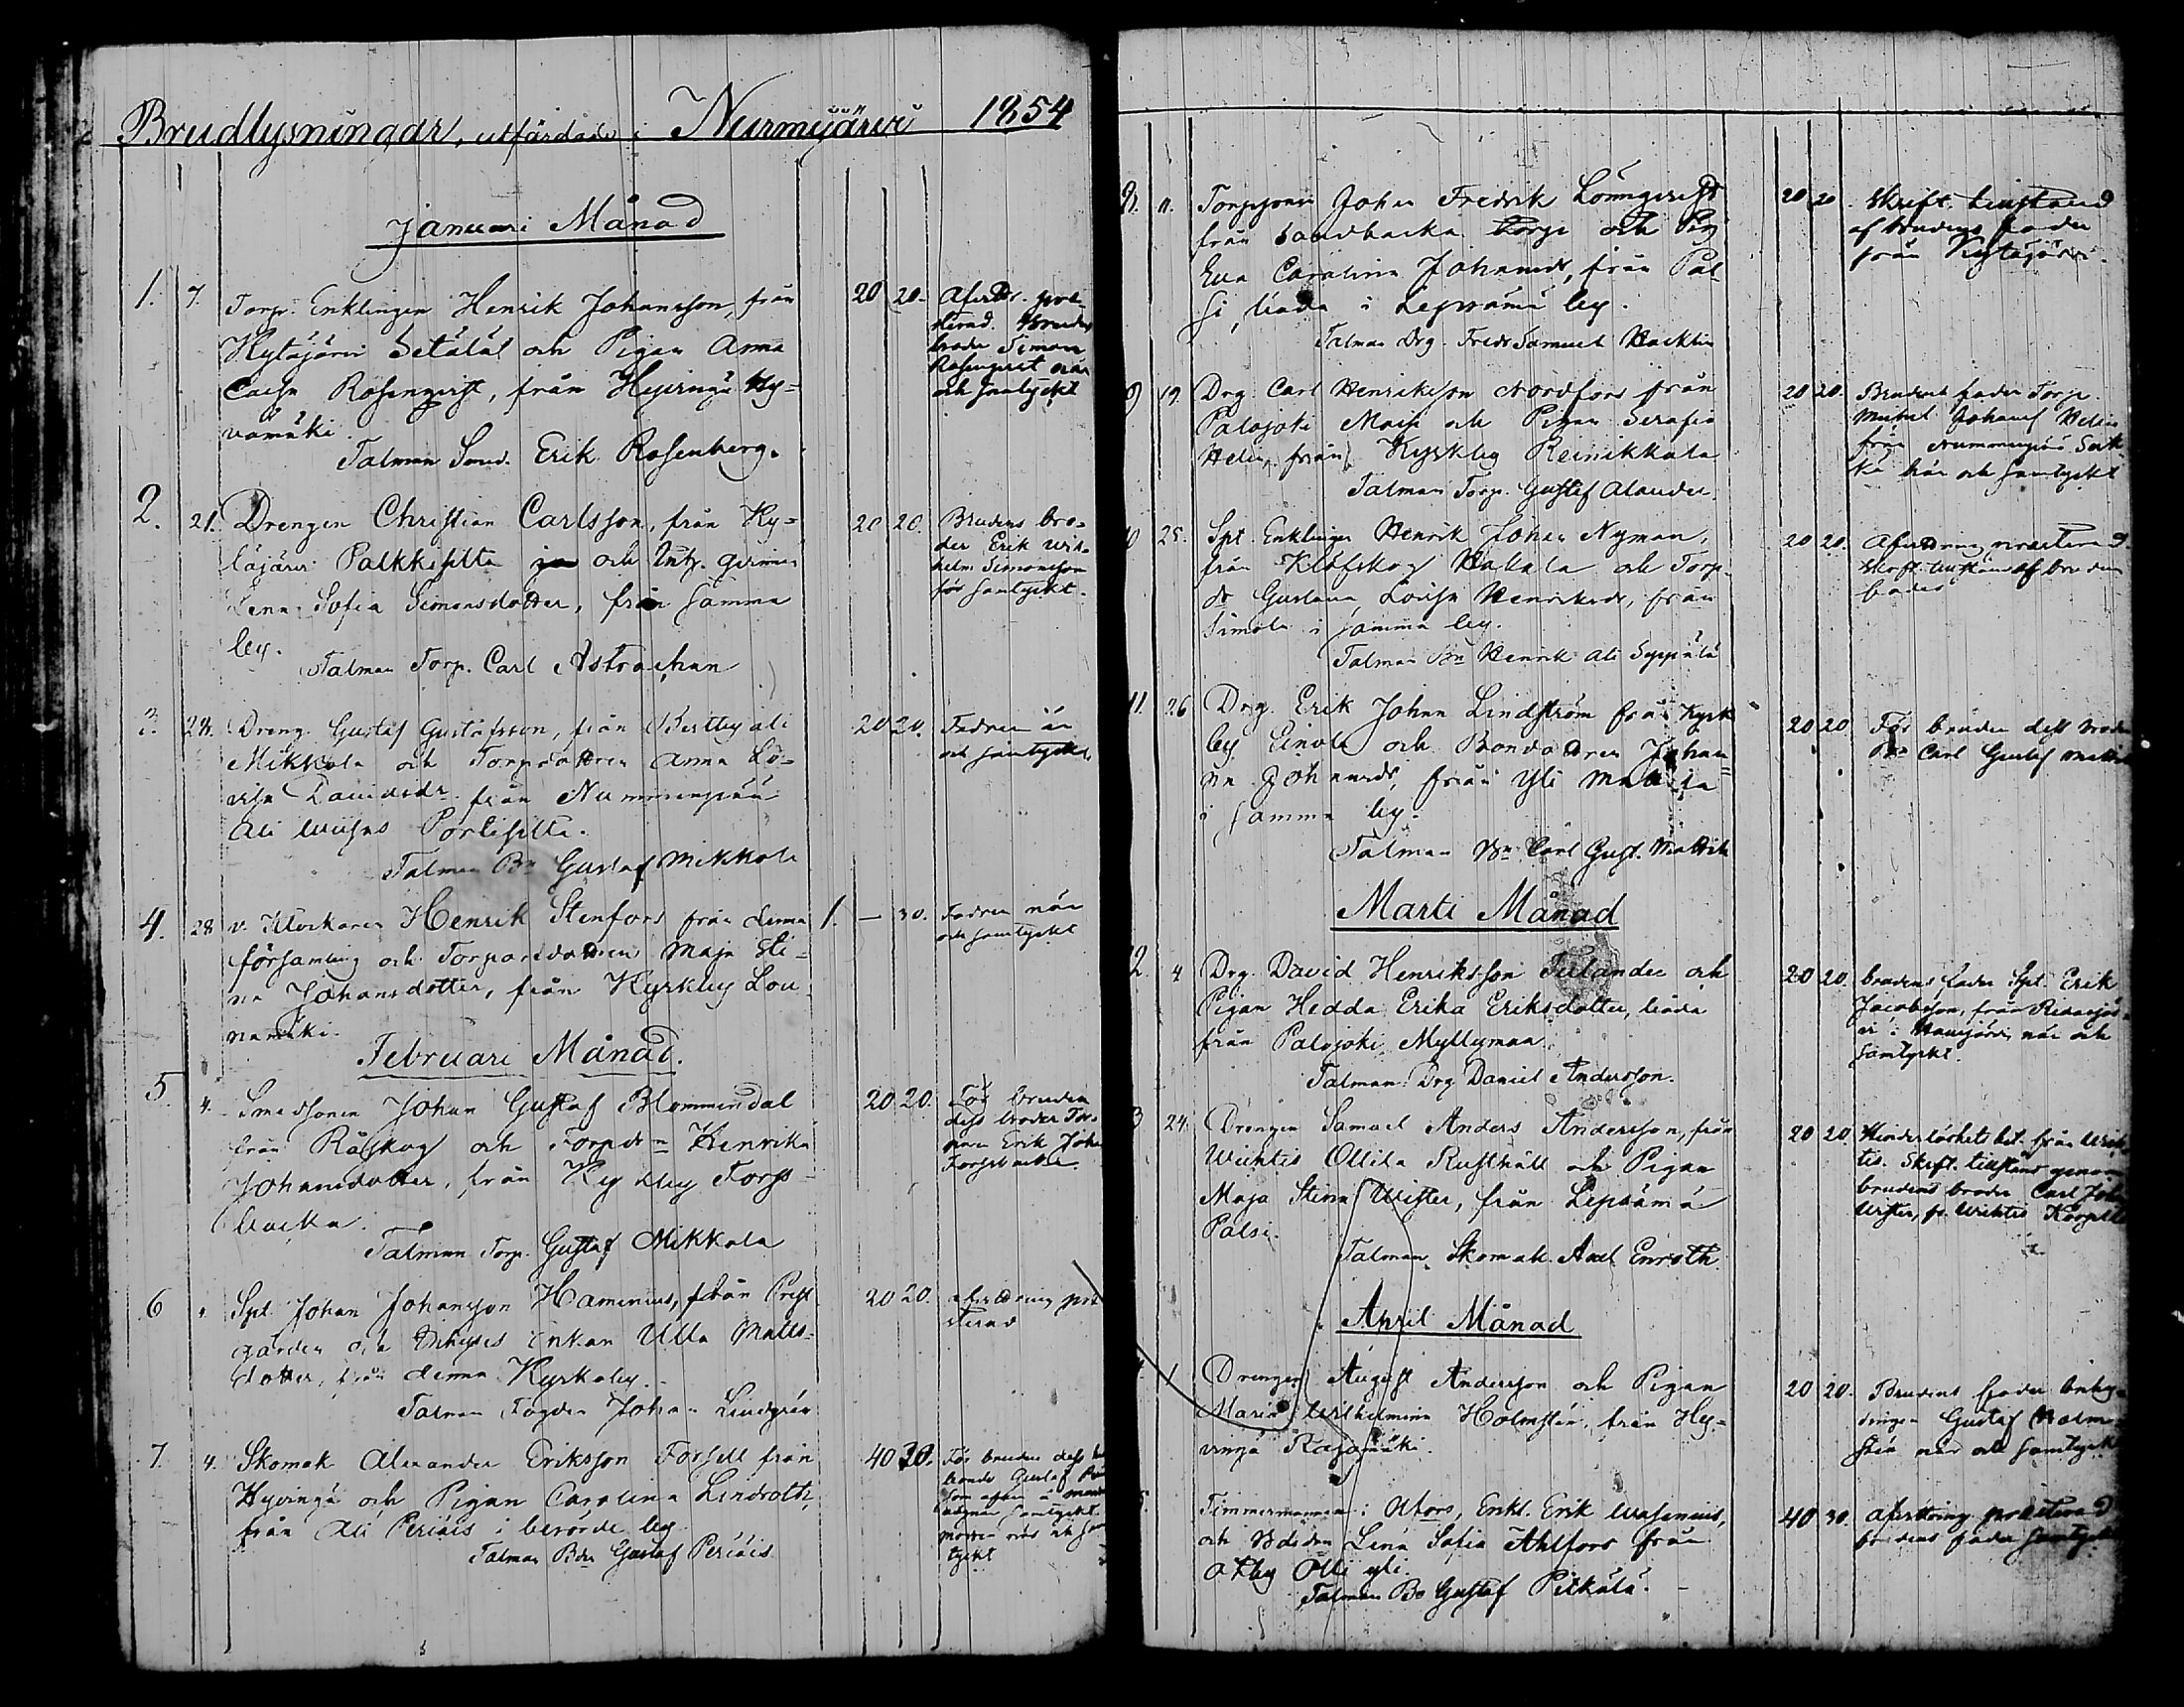 Brudlysningar, utfärdade i Nurmijärvi 1854
Januari Månad
1. 7. Torp. Enklingen Henrik Johansson, från
Kytäjärvi Setälä och Pigan Anna
Caisa Rosenqvist, från Hyvinge Ky-
vämäki.
Talman Sond. Erik Rosenberg.
20 20. Afvittr. pre-
sterad. Brudens
broder Simon
Rosenqvist när
och samtyckt
2. 21. Drengen Christian Carlsson, från Ky-
täjärvi Palkkisilta och Inh. qvinnan
Lena Sofia Simonsdotter, från samma
by.
Talman Torp. Carl Astrachan
20 20. Brudens bro-
der Erik Wil-
helm Simonsson
för samtyckt.
3. 28. Dreng. Gustaf Gustafsson, från Perttby ali
Mikkola och Torpdottren Anna Lo-
visa Davidsdr från Nummenpää
Ali
Talman Bn Gustaf Mikkola
20 20. Fadren när
och samtyckt
4. 28 v. Klockaren Henrik Stenfors från denna
församling och Torparedottren Maja Sti-
na Johansdotter, från Kyrkby Lou-
namäki.
1. — 30. Fadren när
och samtyckt
Februari Månad.
5. 4. Smedsonen Johan Gustaf Blommendal
från Råskog och Torpdrn Henrika
Johansdotter, från Kyrkby Torp-
backa.
Talman Torp. Gustaf Mikkola
20 20. För bruden
dess broder Tor-
paren Erik Joha
Torpbacka
6 " Spl. Johan Johansson Hamenius, från Prest
gården och Inhyses Enkan Ulla Matts-
dotter, från denna Kyrkoby.
Talman Fogden Johan Lindgren
20 20. afvittring pre
sterad
7. 4. Skomak Alexander Eriksson Forsell från
Hyvinge och Pigan Carolina Lindroth,
från Ali Periäis i berörde by
Talman Bdn Gustaf Periäis
40 30. För bruden dess
Gustaf
samtyckt
modren när och sam
tyckt
8. 11. Torpsonen Johan Fredrik Lönnqvist
från Sandbacka torp och Pig
Eva Carolina Johansdr, från Pal
si, båda i Leppämä by.
Talman Drg. Fredr Samuel Backlin
20 20. Skrift. tillstånd
af brudens fader
från Kytäjärvi.
9 19. Drg. Carl Henriksson Nordfors från
Palojoki Moisi och Pigan Serafia
Helin, från Kyrkby Reinikkala
Talman Torp. Gustaf Alander.
20 20. Brudens fader Torp.
Michel Johans Helin
från Nummenpää
när och samtyckt
10 25. Spl. Enklingen Henrik Johan Nyman,
från Klöfskog Uotila och Torp-
dr Gustava Lovisa Henriksdr, från
Simola i samma by.
Talman Bn Henrik Ali Seppälä
20 20. Afvittring presterad
Skrift. tillstånd af brudens
fader
11. 26 Drg. Erik Johan Lindström från Kyrk
by Einola och Bondottren Johan
na Johansdr, från Yli Mattila
i samma by.
Talman Bn Carl Gust. Mattila
20 20 För bruden dess broder
Bn Carl Gustaf Mattila
Marti Månad
12. 4 Drg. David Henriksson Tulander och
Pigan Hedda Erika Eriksdotter, båda
från Palojoki Myllymaa.
Talman Drg Daniel Andersson.
20 20. brudens fader Spl. Erik
Jacobsson, från Ridasjär-
vi i Hausjärvi, när och
samtyckt.
13 24. Drengen Samuel Anders Andersson, från
Wichtis Ollila Rusthåll och Pigan
Maja Stina Wister, från Leppämä
Palsi.
Talman Skomak. Axel Enroth.
20 20. Hinderlöshets bet. från Wich-
tis. Skrift. tillstånd genom
brudens broder Carl Joh
Wister, fr. Wichtis
April Månad
1 Drengen August Andersson och Pigan
Maria Wilhelmina Holmstén, från Hy-
vinge Rajamäki.
20 20. Brudens fader Inhy-
singen Gustaf Holm-
stén när och samtyckt
Timmermannen i Åfors, Enkl. Erik Wasenius,
och Bdsdtrn Lena Sofia Ahlfors från
Olli yli.
Talman Bo Gustaf Pitkälä.
40 30. Afvittring presterad
brudens fader samtyckt